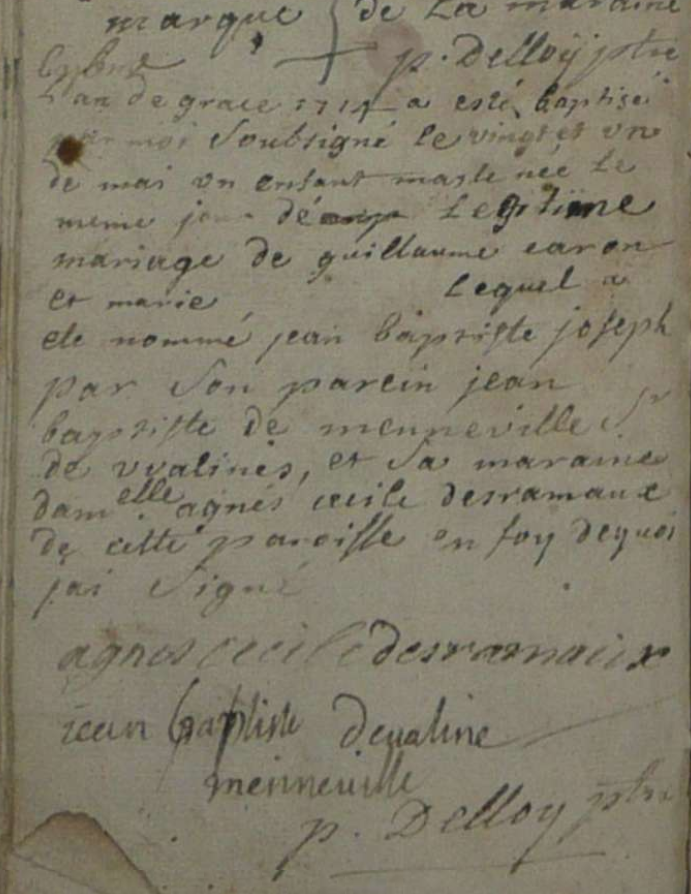 marque de La maraine
p. Delloÿ ptre
L'an de grace 1714 a esté baptisé
par moi Soubsigné le vingt et vn
de mai vn enfant masle née le
meme jour dé Legitime
mariage de guillaume caron
et marie Lequel a
ete nommé jean baptiste joseph
par Son parein jean
baptiste de menneville Sr
de vvalines, et Sa maraine
damelle agnés cecile desramaux
de cette paroisse en foy dequoi
jai Signé
agnes cecile desramaux
iean baptiste devaline
menneuille
p. Delloy ptre